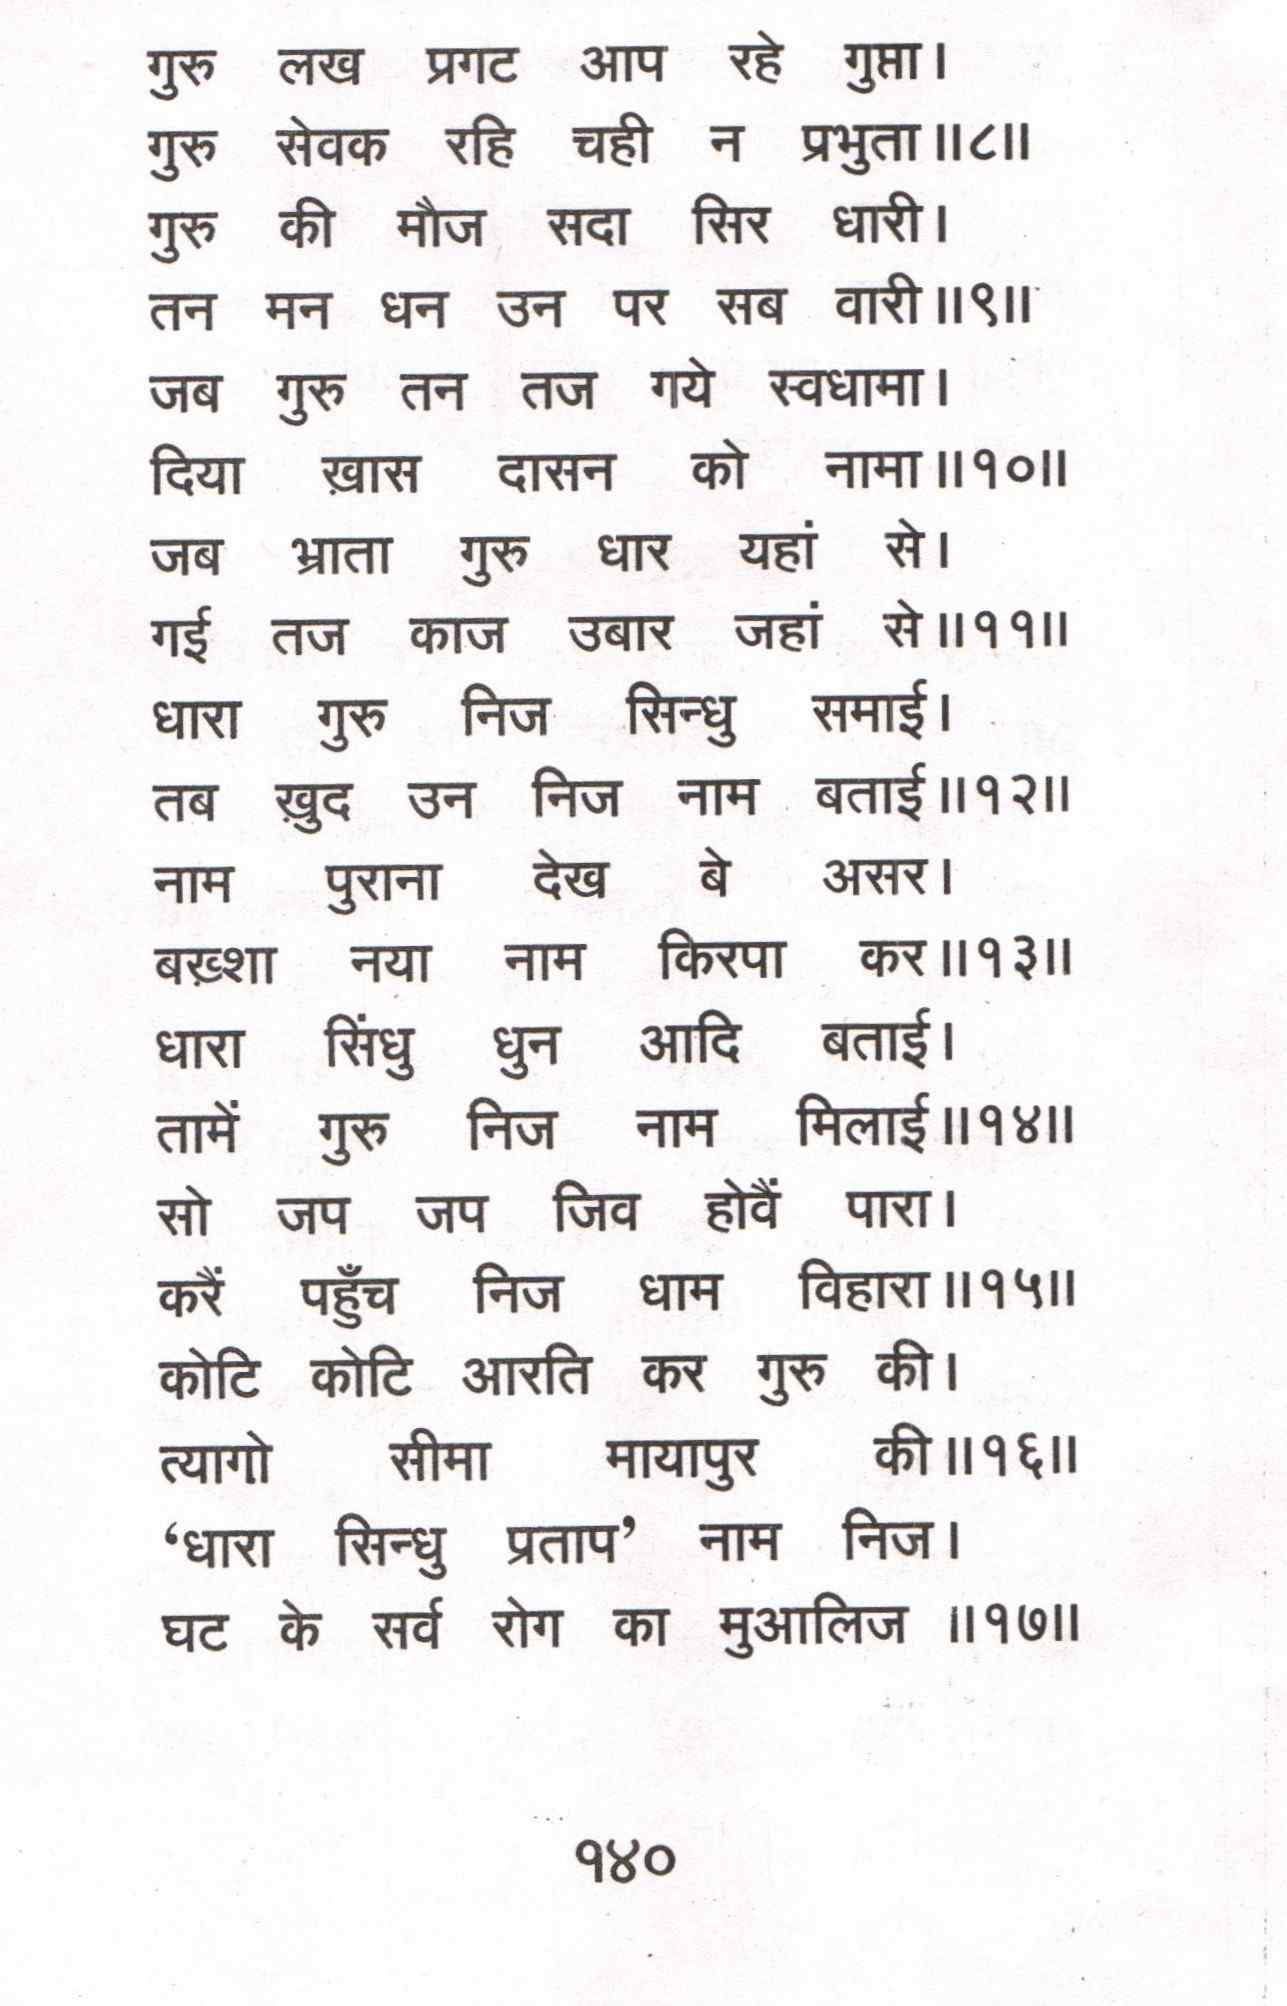 गुरु लख प्रगट आप रहे गुप्ता।
गुरु सेवक रहि चही न प्रभुता॥८॥
गुरु की मौज सदा सिर धारी।
तन मन धन उन पर सब वारी॥९॥
जब गुरु तन तज गये स्वधामा।
दिया ख़ास दासन को नामा॥१०॥
जब भ्राता गुरु धार यहां से।
गई तज काज उबार जहां से॥११॥
धारा गुरु निज सिन्धु समाई।
तब ख़ुद उन निज नाम बताई॥१२॥
नाम पुराना देख बे असर।
बख़्शा नया नाम किरपा कर॥१३॥
धारा सिंधु धुन आदि बताई।
तामें गुरु निज नाम मिलाई॥१४॥
सो जप जप जिव होवैं पारा।
करैं पहुँच निज धाम विहारा॥१५॥
कोटि कोटि आरति कर गुरु की।
त्यागो सीमा मायापुर की॥१६॥
‘धारा सिन्धु प्रताप’ नाम निज।
घट के सर्व रोग का मुआलिज ॥१७॥
१४०